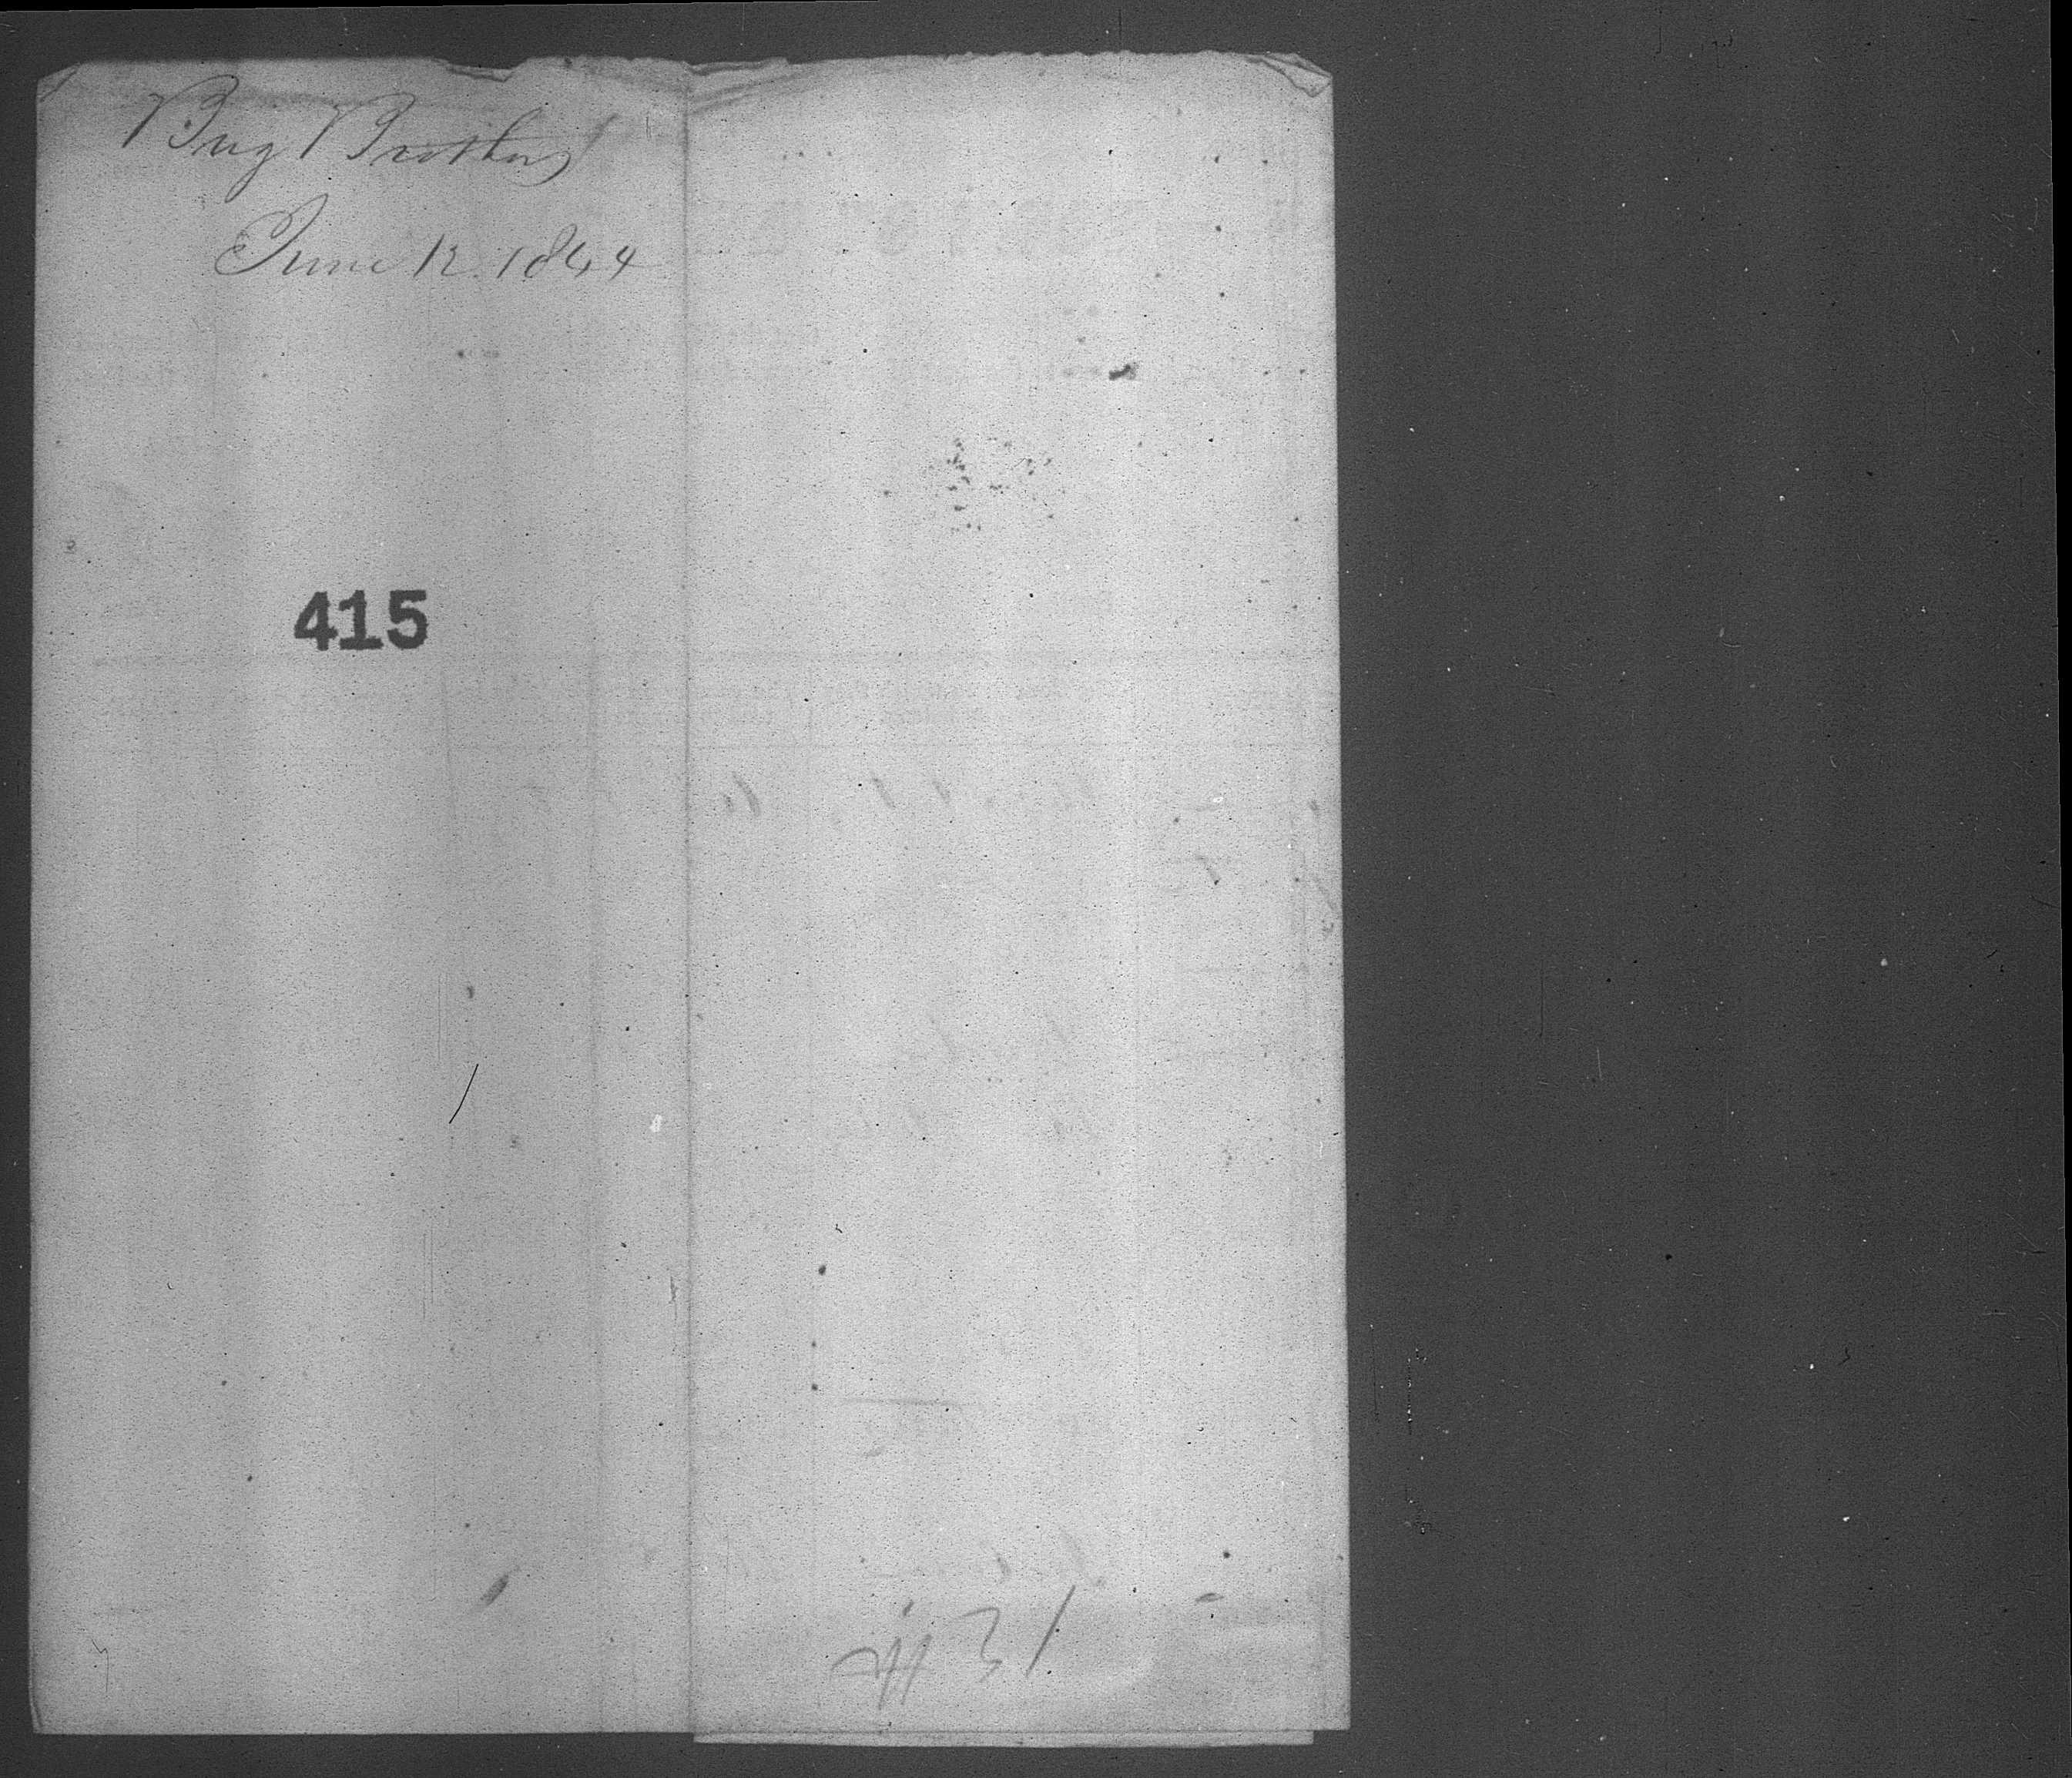 Brig Brothers
June 12. 1844
415
# 31